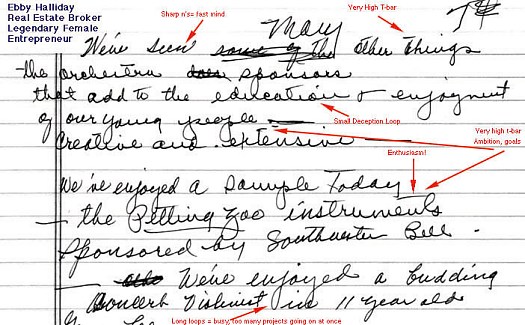 Ebby Halliday
Real Estate Broker
Legendary Female
Entrepreneur
Sharp n's= fast mind
Very High T-bar
7#
Many
We've seen some of the other things
the orchestra does sponsors
that add to the education + enjoyment
Small Deception Loop
of our young people —
Very high t-bar
Ambition, goals
creative and extensive —
Enthusiasm!
We've enjoyed a sample Today
— the Petting Zoo instruments
sponsored by Southwestern Bell -
— We've enjoyed a budding
Concert Violinist in 11 year old
Long loops = busy, too many projects going on at once